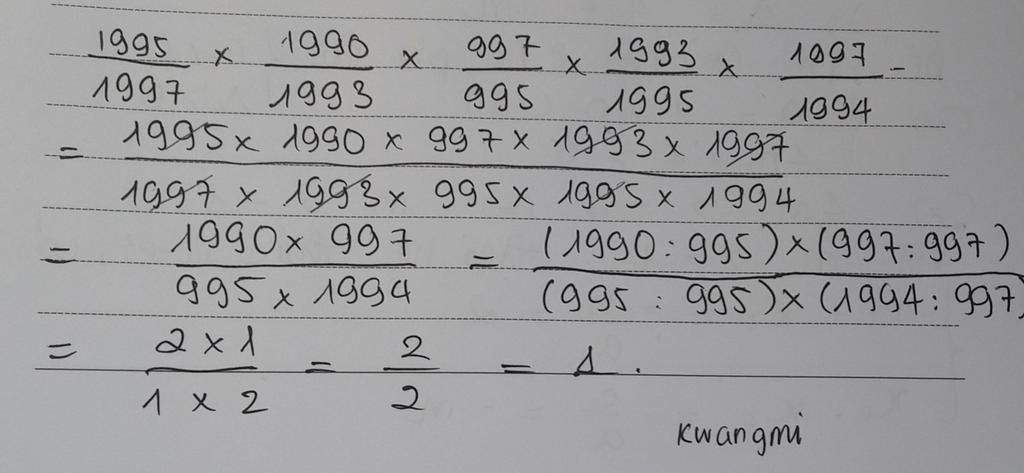 1995/1997 × 1990/1993 × 997/995 × 1993/1995 × 1997/1994 -
= 1995 × 1990 × 997 × 1993 × 1997 / 1997 × 1993 × 995 × 1995 × 1994
= 1990 × 997 / 995 × 1994 = (1990 : 995) × (997 : 997) / (995 : 995) × (1994 : 997)
= 2 × 1 / 1 × 2 = 2/2 = 1.
Kwangmi